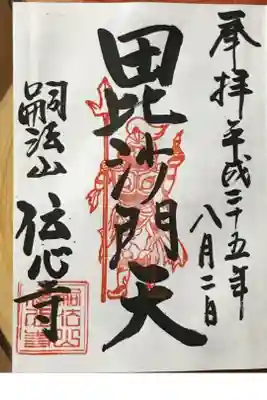 奉拝
平成二十五年
八月二日
毘沙門天
嗣法山
伝心寺